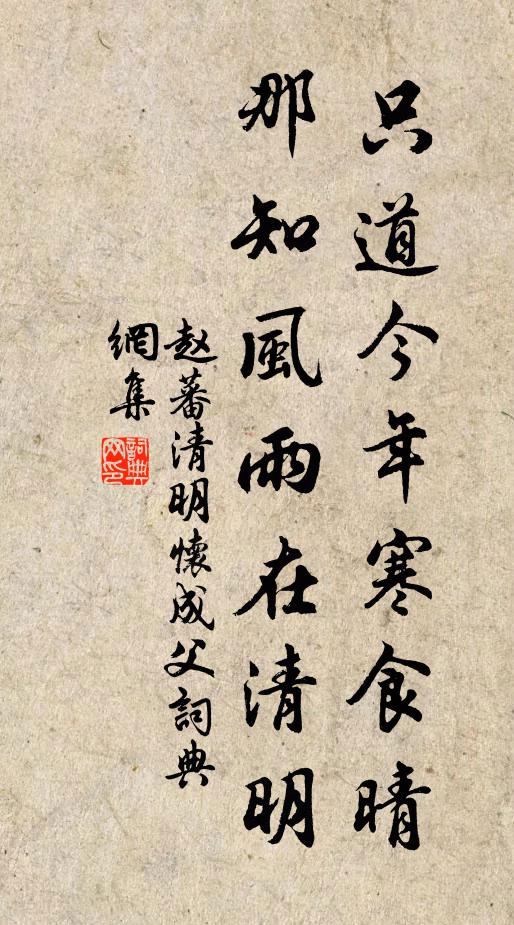 只道今年寒食晴
那知風雨在清明
趙蕃清明懷成父詞典
網集
詞典
网印